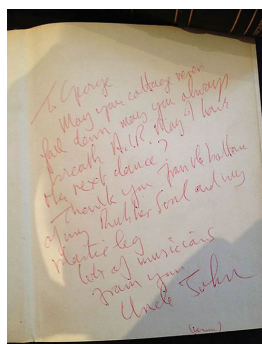 To George
May your cottage never
fall down may you always
beneath A.I.R. May I have
the next dance?
Thank you from the bottom
of my Rubber Soul and my
plastic leg
lots of musicians
from your
Uncle John